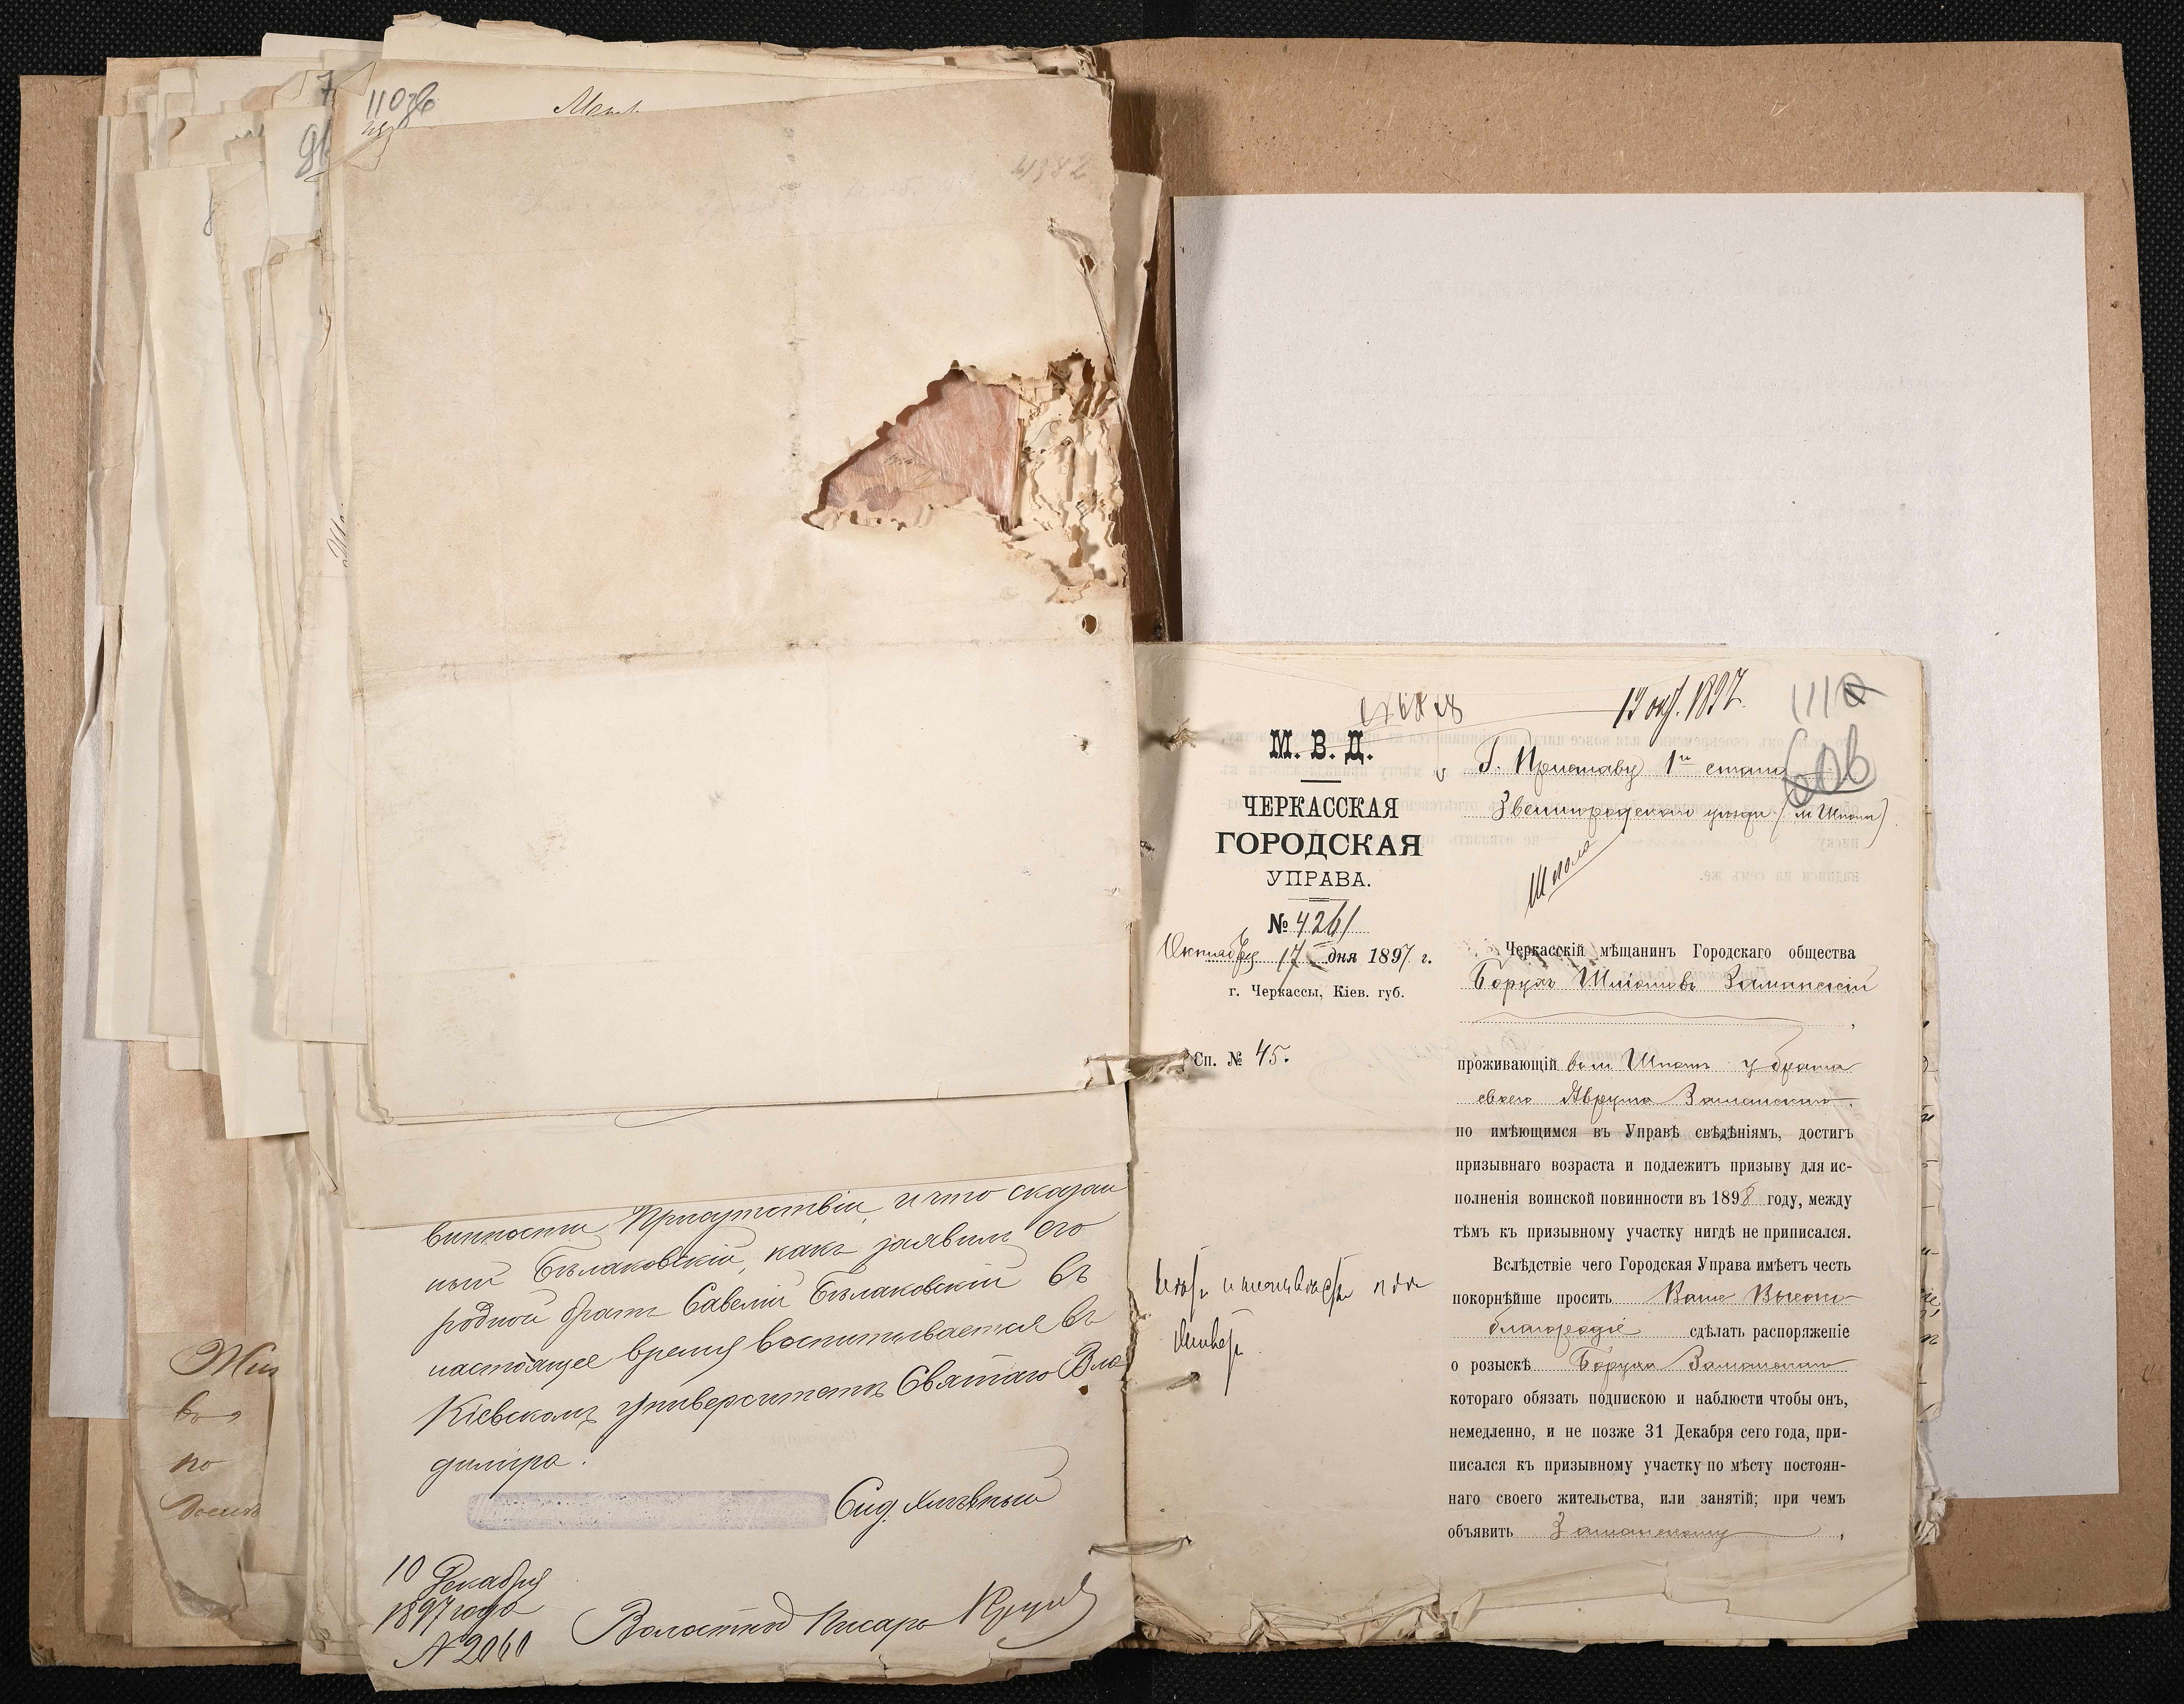 110
4382
винности Присутствіи, и что сказан
ный Бѣлаковскій, какъ заявилъ его
родной братъ Савелій Бѣлаковскій въ
настоящее время воспитывается въ
Кіевскомъ университетѣ Святаго Вла
диміра.
10 Декабря
1897 года
№ 2060
Волостной Писарь
Жит
во
по
М. В. Д.
ЧЕРКАССКАЯ
ГОРОДСКАЯ
УПРАВА.
№ 4261
Октября 17 дня 1897 г.
г. Черкассы, Кіев. губ.
Сп. № 45.
окт. 1897.
111
606
Г. Приставу 1го стана
Звенигородскаго уѣзда (м. Шпола)
Шпола
Черкасскій мѣщанинъ Городскаго общества
Борухъ Шліомовъ Заманскій
проживающій въ м. Шполѣ у брата
своего Аврума Заманскаго,
по имѣющимся въ Управѣ свѣдѣніямъ, достигъ
призывнаго возраста и подлежитъ призыву для ис-
полненія воинской повинности въ 1898 году, между
тѣмъ къ призывному участку нигдѣ не приписался.
Вслѣдствіе чего Городская Управа имѣетъ честь
покорнѣйше просить Ваше Высоко-
благородіе сдѣлать распоряженіе
о розыскѣ Боруха Заманскаго
котораго обязать подпискою и наблюсти чтобы онъ,
немедленно, и не позже 31 Декабря сего года, при-
писался къ призывному участку по мѣсту постоян-
наго своего жительства, или занятій; при чемъ
объявить Заманскому,